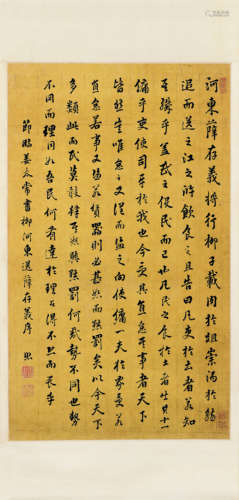 河東薛存義將行柳子載肉於俎崇酒於觴
追而送之江之滸飲食之且告曰凡吏於土者若知
其職乎蓋民之役民而已也凡民之食於土者出其十一
傭乎吏使司平於我也今受其直怠其事者天下
皆然豈惟怠之又從而盜之向使傭一夫於家受若
直怠若事又盜若貨器則必甚怒而黜罰矣以今天下
多類此而民莫敢肆其怒與黜罰何哉勢不同也勢
不同而理同如吾民何有達於理者得不恐而畏乎
節臨姜太常書柳河東送薛存義序